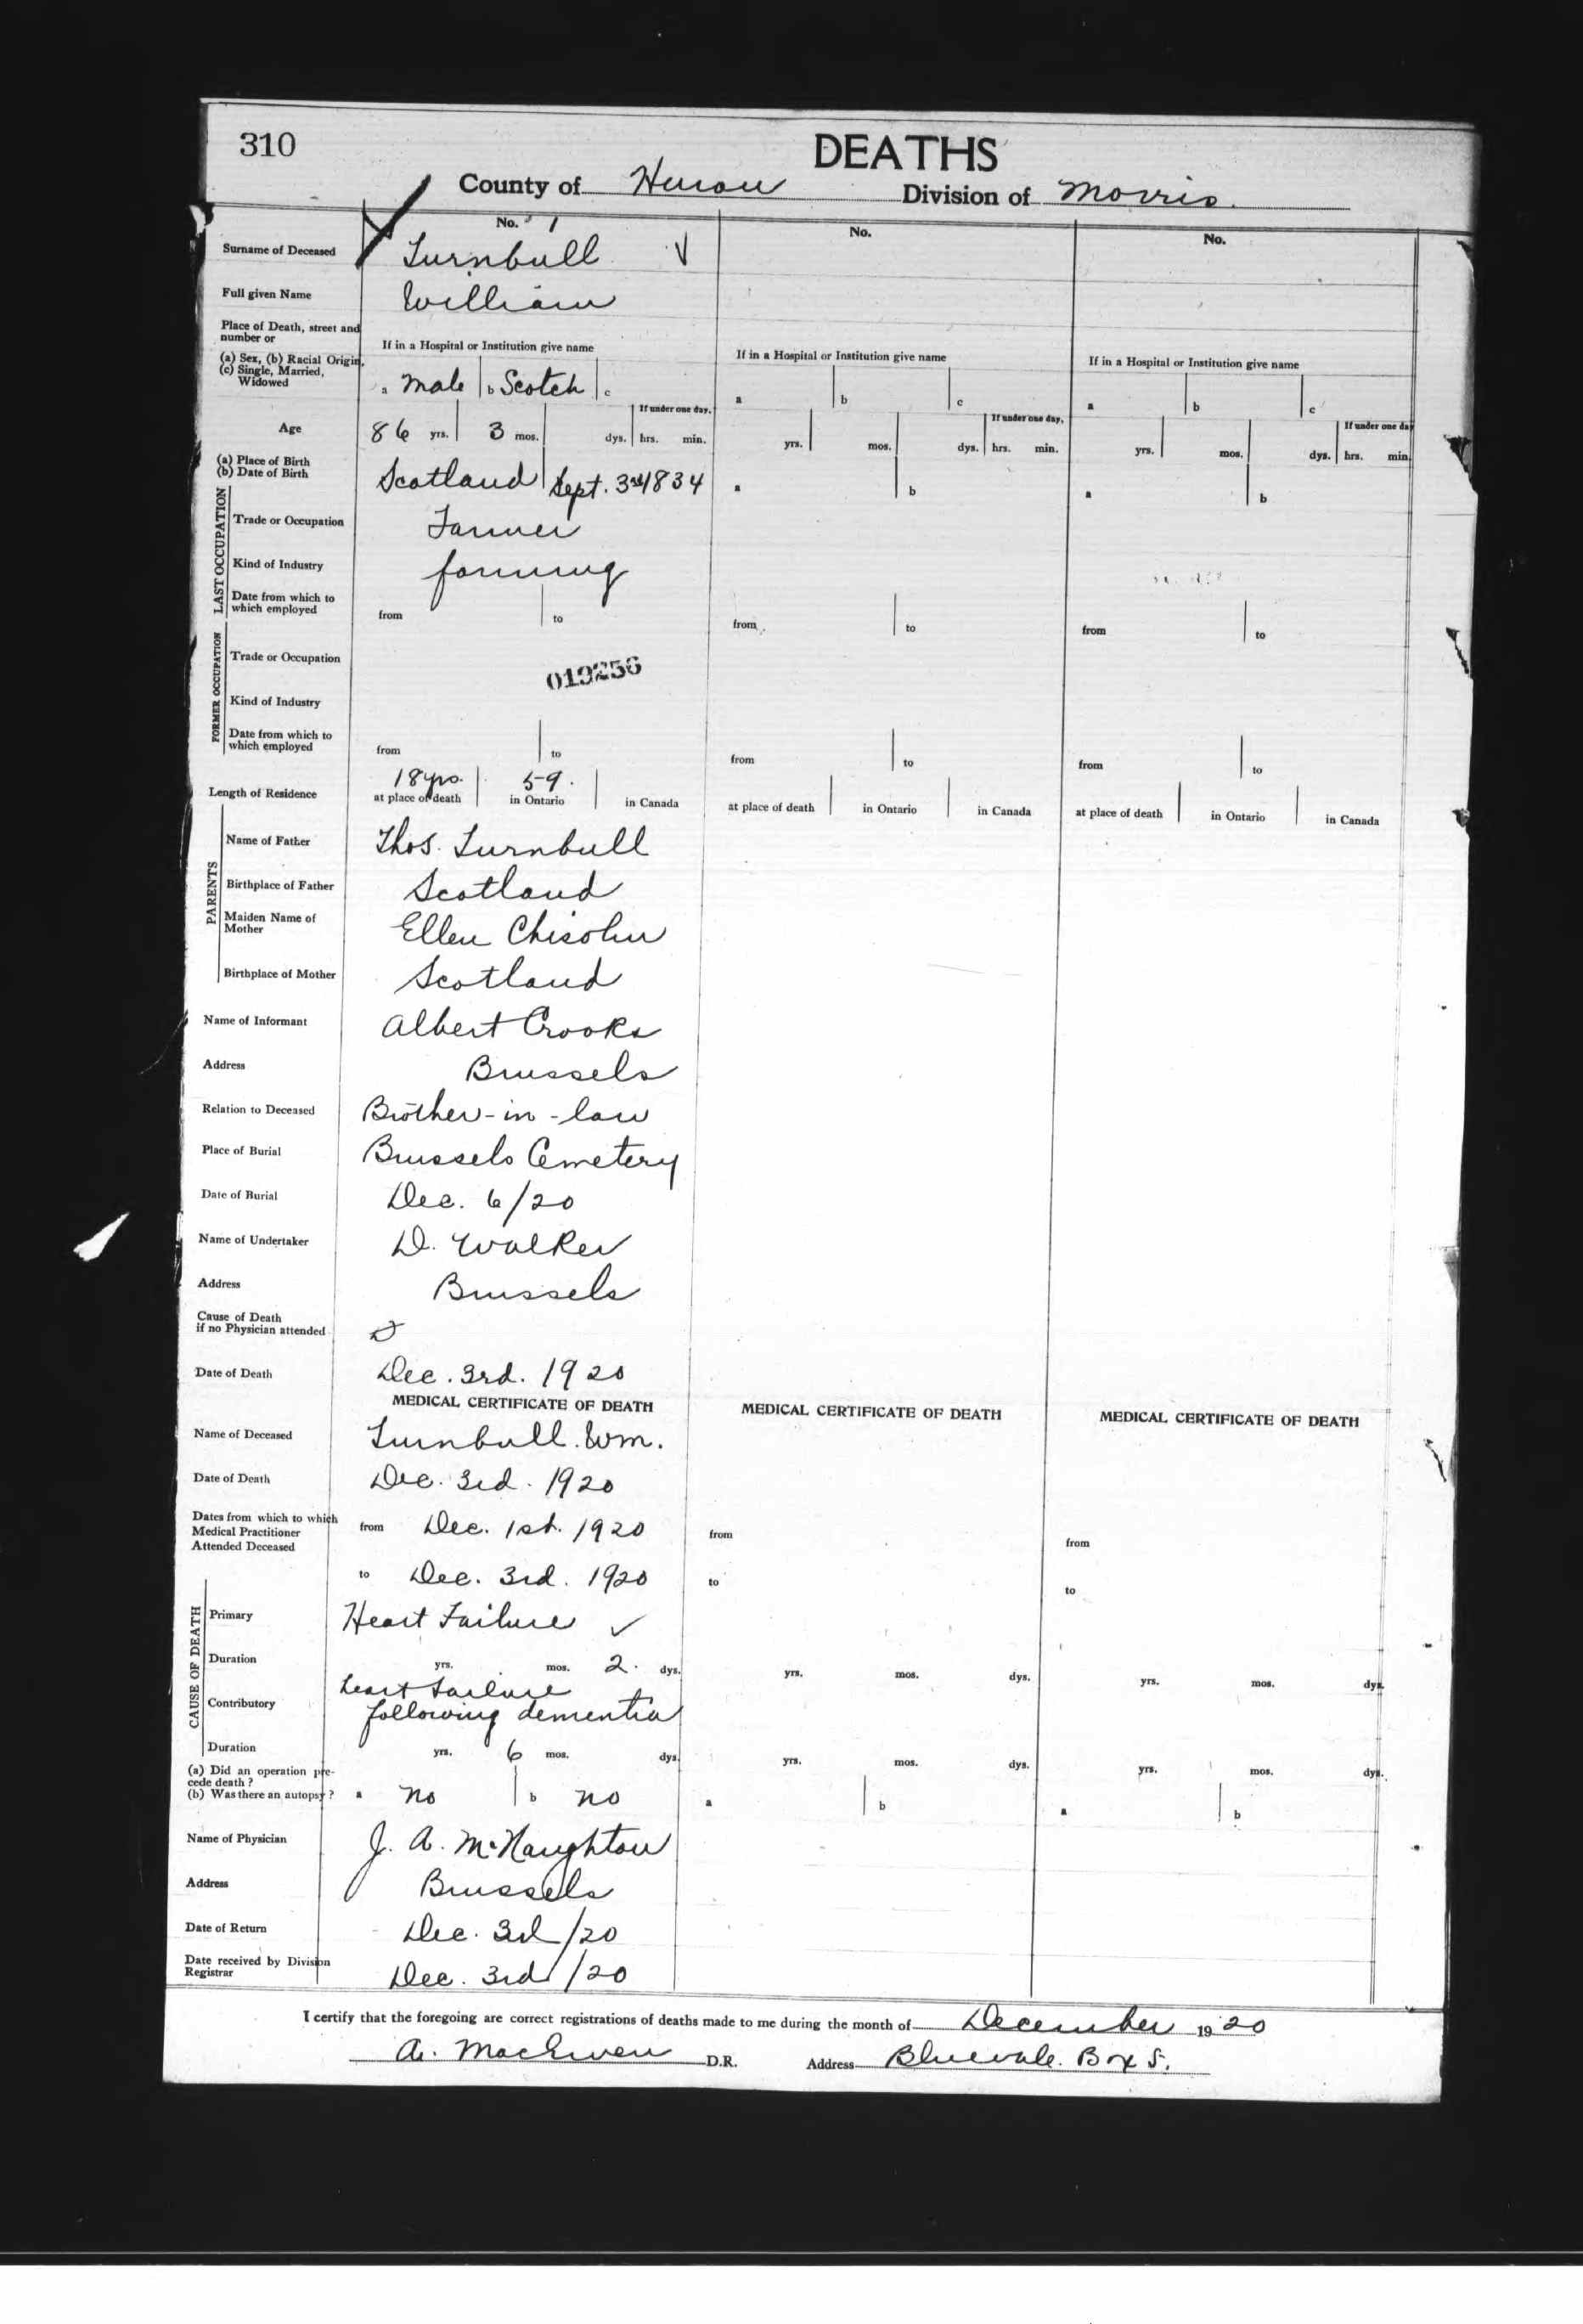 310
DEATHS
County of Huron Division of Morris.
No. 1 No. No.
Surname of Deceased Turnbull
Full given Name William
Place of Death, street and number or
If in a Hospital or Institution give name If in a Hospital or Institution give name If in a Hospital or Institution give name
(a) Sex, (b) Racial Origin, (c) Single, Married, Widowed a Male b Scotch c a b c a b c
Age 86 yrs. 3 mos. dys. If under one day, hrs. min. yrs. mos. dys. If under one day, hrs. min. yrs. mos. dys. If under one day hrs. min.
(a) Place of Birth (b) Date of Birth Scotland Sept. 3rd 1834 a b a b
LAST OCCUPATION
Trade or Occupation Farmer
Kind of Industry farming
Date from which to which employed from to from to from to
FORMER OCCUPATION
Trade or Occupation
019256
Kind of Industry
Date from which to which employed from to from to from to
Length of Residence 18 yrs. at place of death 59. in Ontario in Canada at place of death in Ontario in Canada at place of death in Ontario in Canada
PARENTS
Name of Father Thos. Turnbull
Birthplace of Father Scotland
Maiden Name of Mother Ellen Chisolm
Birthplace of Mother Scotland
Name of Informant Albert Crooks
Address Brussels
Relation to Deceased Brother-in-law
Place of Burial Brussels Cemetery
Date of Burial Dec. 6/20
Name of Undertaker D. Walker
Address Brussels
Cause of Death if no Physician attended
Date of Death Dec. 3rd. 1920
MEDICAL CERTIFICATE OF DEATH MEDICAL CERTIFICATE OF DEATH MEDICAL CERTIFICATE OF DEATH
Name of Deceased Turnbull. Wm.
Date of Death Dec. 3rd. 1920
Dates from which to which Medical Practitioner Attended Deceased from Dec. 1st. 1920 from from
to Dec. 3rd. 1920 to to
CAUSE OF DEATH
Primary Heart Failure
Duration yrs. mos. 2. dys. yrs. mos. dys. yrs. mos. dys.
Contributory heart failure
following dementia
Duration yrs. 6 mos. dys. yrs. mos. dys. yrs. mos. dys.
(a) Did an operation precede death? (b) Was there an autopsy? a no b no a b a b
Name of Physician J. A. McNaughton
Address Brussels
Date of Return Dec. 3rd/20
Date received by Division Registrar Dec. 3rd/20
I certify that the foregoing are correct registrations of deaths made to me during the month of December 1920
A. MacEwen D.R. Address Bluevale. Box 5.